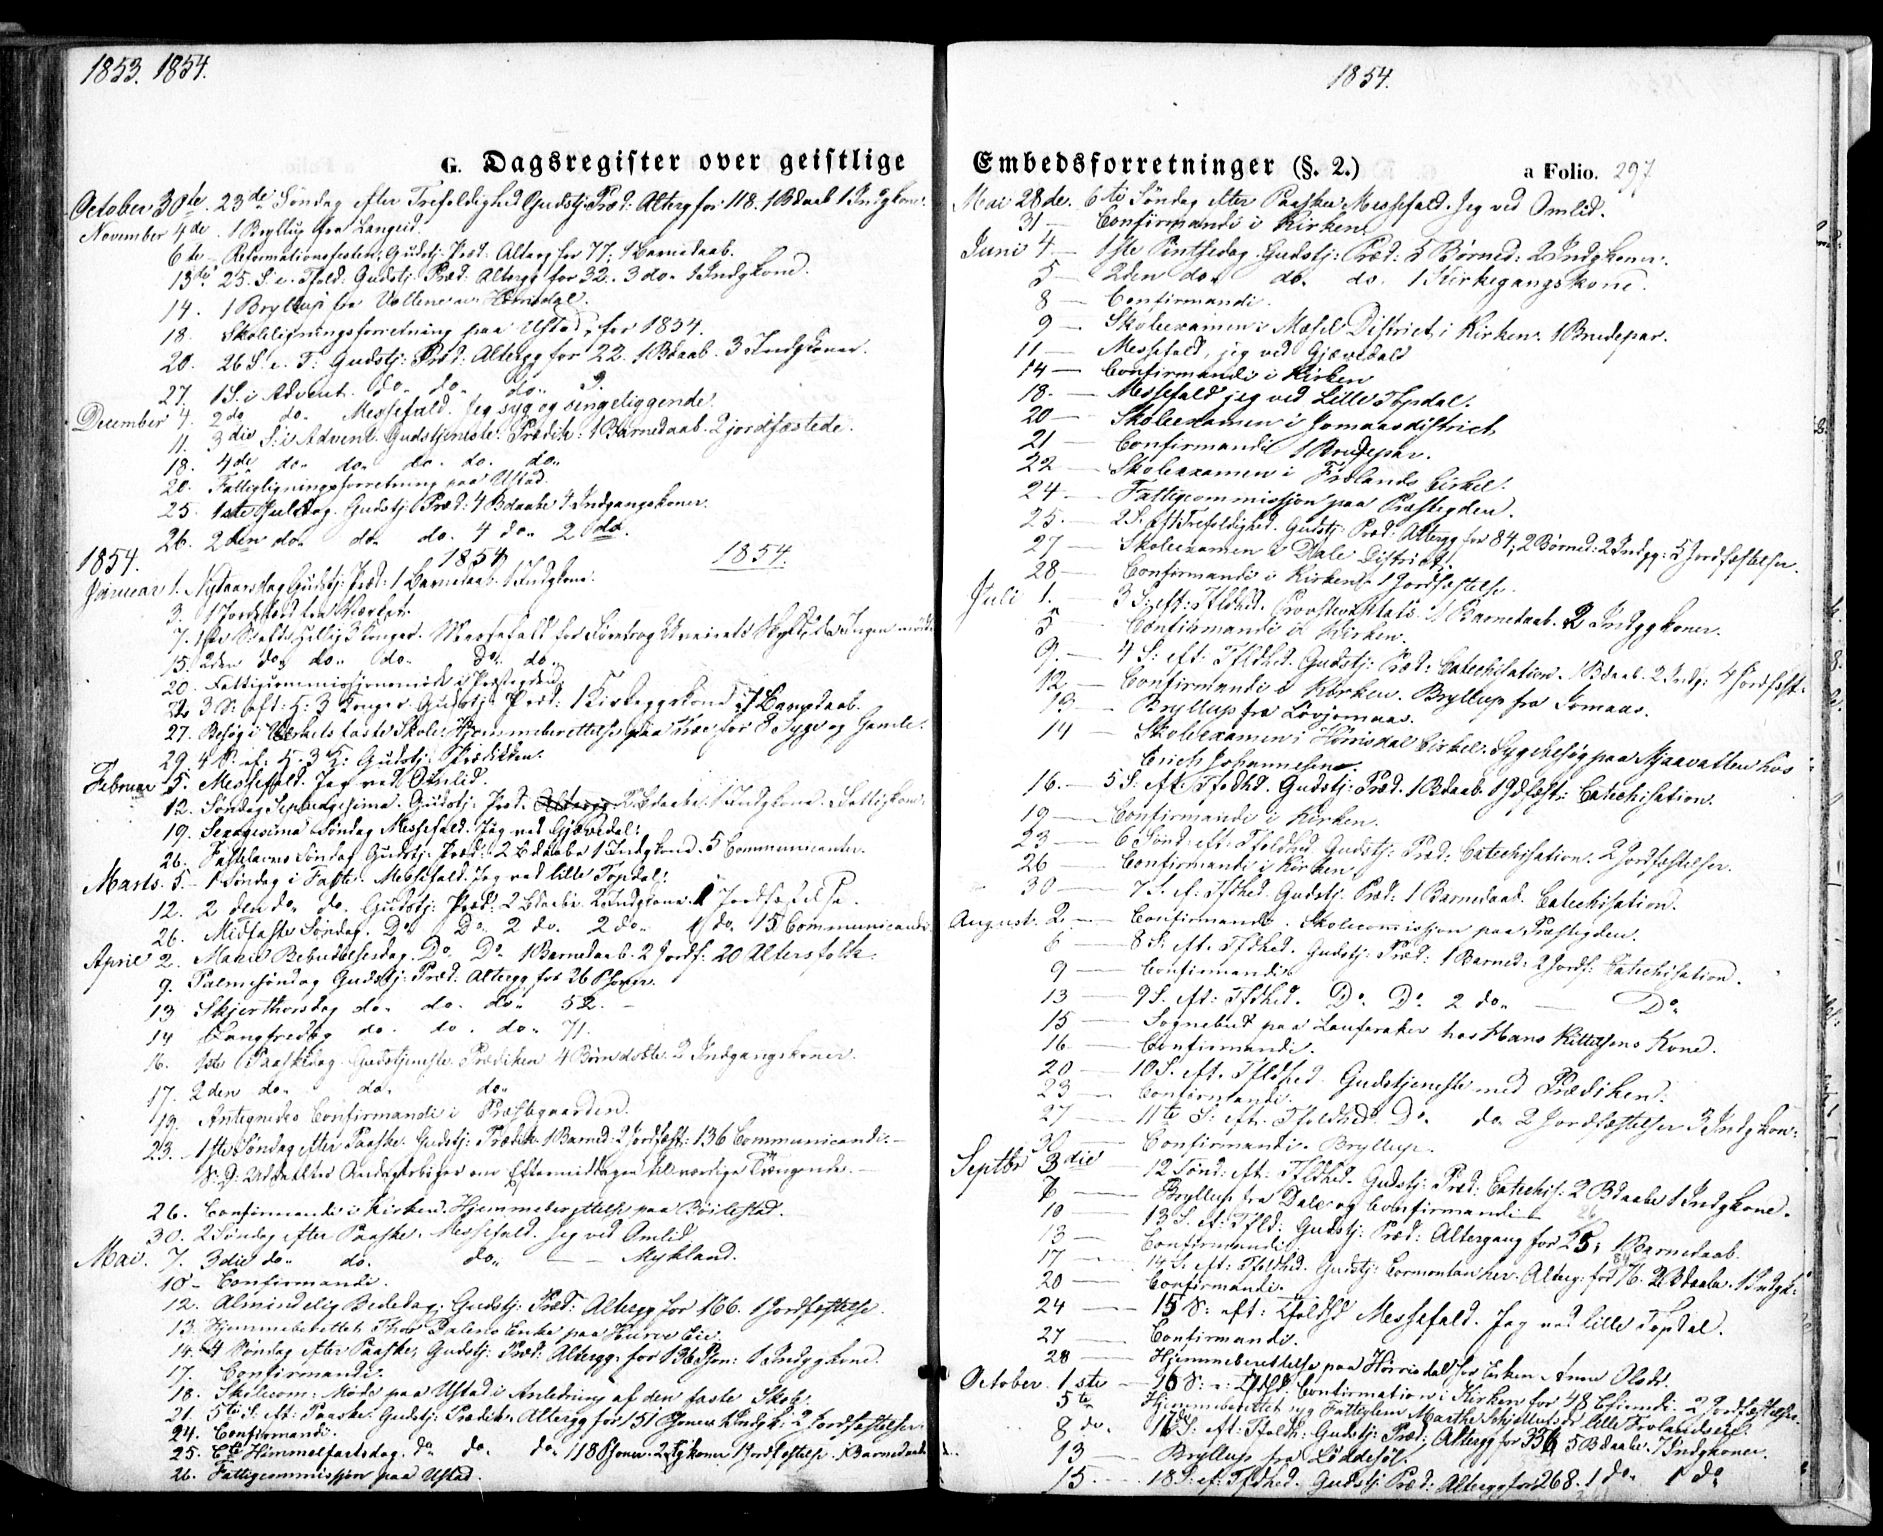 1853. 1854.
G. Dagsregister over geistlige
October 30te. 23de Søndag efter Trefoldighed Gudstj: Præd: Alterg for 118. 1 Bdaab 1 Indgkone.
November 4de. 1 Bryllup fra Langeid.
6te Reformationsfesten; Gudstj: Præd: Alterg for 77; 1 Barnedaab.
13de 25. S. e. Tfold: Gudstj: Præd: Altergg for 32. 3 do. 1 Indgkone.
14. 1 Bryllup fra
18. Skoleligningsforretning paa Ustad, for 1854.
20. 26 S. e. T: Gudstj: Præd: Altergg for 22. 1 Bdaab. 3 Indgkoner.
27. 1 S. i Advent. do. do. do.
December 4. 2de do. Messefald. Jeg syg og sengeliggende.
11. 3die S. i Advent. Gudstjeneste: Prædik: 1 Barnedaab. 2 jordfæstede.
18. 4de do. do. do. do. do.
20. Fattigligningsforretning paa Ustad.
25. 1ste Juledag. Gudstj: Præd: 4 Bdaabe 4 Indgangskoner.
26. 2den do. do. do. 4 do. 2 do.
1854. 1854 1854.
Januar 1. Nytaarsdag Gudstj: Præd: 1 Barnedaab. 1 Indgkone.
3. 1 Jordfæstet
7. Hellig 3 Konger. Messefald for Ingen mødte
15. 2den do. do. do. Do. do.
20. Fattigcommissionsmøde i Præstegden.
22. 3 S: eft: H: 3 Konger. Gudstj: Præd: 1 Kirkeggskone; 1 Barnedaab.
27. Besøg i Værkets faste Skole. Hjemmeberettelse paa for 8 Syge og Gamle.
29. 4 S. ef: H. 3 K: Gudstj: Prædiken.
Februar 5. Messefald. Jeg ved Omlid.
12. Søndag Septuagesima. Gudstj: Præd. 2 Bdaabe. 1 Indgkone.
19. Sexagesima Søndag Messefald. Jeg ved Gjævedal.
26. Fastelavns Søndag Gudstj: Præd: 2 Bdaabe 1 Indgkone. 5 Communicanter.
Marts. 5. 1 Søndag i Faste. Messefald. Jeg ved lille Topdal.
12. 2den do. do. Gudstj: Præd: 2 Bdaabe. 2 Indgkoner. 1 Jordfæstelse.
26. Midfaste Søndag. Do Do 2 do. 2 do. 1 do. 15 Communicander
April 2. Mariæ Bebudelsesdag. Do. Do. 1 Barnedaab. 2 Jordf: 20 Altersfolk.
9. Palmesøndag Gudstj: Præd. Altergg for 26 Psoner.
13. Skjerthorsdag do. do. do. 52.
14 Langfredag do. do. do. 71.
16. 1ste Paaskedag. Gudstjeneste. Prædiken 4 Børn døbte. 2 Indgangskoner.
17. 2den do. do. do.
19. Antegnedes Confirmandi i Præstegaarden.
23. 1ste Søndag efter Paaske. Gudstj: Prædik. 1 Barned: 2 Jordfæst: 136 Communicandi.
S: D: Uddeeltes Andagtsbøger om Eftermiddagen til værdige Trængende.
26. Confirmandi i Kirken. Hjemmeberettelse paa Bøilestad.
30. 2 Søndag efter Paaske. Messefald. Jeg ved Omlid.
Mai. 7. 3die do. do. do. — Mykland.
10 Confirmandi.
12. Almindelig Bededag; Gudstj: Præd: Altergg for 166. 1 Jordfæstelse.
13. Hjemmeberettet Enke paa
14. 4 Søndag efter Paaske; Gudstj: Præd: Altergg. for 136 Pson: 1 Indggkone.
17. Confirmandi.
18. Skolecom: Møde paa Ustad i Anledning af den faste Skole.
21. 5te S: eft: Paaske. Gudstj: Prædik. Altergg for 151 Psoner 2 Jordfæstelser
24. Confirmandi.
25. Chr Himmelfartsdag. do do. do. 118 Psoner. 1 Jordfæstelse. 1 Barnedaab
26. Fattigcommissjon paa Ustad.
1854.
Embedsforretninger (§. 2.)
a Folio. 297
Mai 28de. 6te Søndag efter Paaske Messefald. Jeg ved Omlid.
31 — Confirmandi i Kirken.
Juni 4 — 1ste Pintsedag. Gudstj: Præd: 5 Børned: 2 Indgkoner.
5 — 2den do. do. do. 1 Kirkegangskone.
8 — Confirmandi.
9 — Skoleexamen i Mæsel District, i Kirken. 1 Brudepar.
11 — Messefald, jeg ved Gjævedal
14 — Confirmandi i Kirken
18. — Messefald jeg ved Lille Topdal.
20 — Skoleexamen i Jomaasdistrict
21 — Confirmandi 1 Brudepar.
22 — Skoleexamen i Frolands Cirkel.
24 — Fattigcommissjon paa Præstegden.
25. — 2 S. eft Trefoldighed. Gudstj: Præd: Altergg for 84; 2 Børned: 2 Indgg: 5 Jordfæstelser.
27 — Skoleexamen i Dale District.
28 — Confirmandi i Kirken. 1 Jordfæstelse.
Juli 1. — 3 S: eft: Tfldhed. Provstevisitats. 4 Barnedaab. 2 Indggkoner.
5 — Confirmandi i Kirken.
9. — 4 S: eft: Tfldhed. Gudstj: Præd: Catechisation. 1 Bdaab. 2 Indg: 4 Jordfæst:
12 — Confirmandi i Kirken. Bryllup fra Jomaas.
13 — Bryllup fra Løvjomaas.
14 — Skoleexamen i Hørrisdal Cirkel. Sygebesøg paa Mjaavatten hos
Erich Johannesen
16. — 5 S. eft: Tfoldhd. Gudstj: Præd. 1 Bdaab. 1 Jdfæst: Catechisation.
19 — Confirmandi i Kirken.
23 — 6 Sønd: eft: Tfoldhed. Gudstj: Præd: Catechisation. 2 Jordfæstelser.
26 — Confirmandi i Kirken
30 — 7 S. ef. Tfldhed. Gudstj: Præd: 1 Barnedaab. Catechisation.
August. 2. — Confirmandi. Skolecomissjon paa Præstegden.
6 — 8 S. eft. Tfldhed. Gudstj: Præd: 1 Barned: 2 Jordf: Catechisation.
9 — Confirmandi.
13 — 9 S. eft: Tfldhed. Do. Do. 2 do. — Do.
15 — Sognebud paa Lauvraker hos Hans Kittelsens Kone.
16 — Confirmandi.
20 — 10 S. eft. Tfldhed. Gudstjeneste med Prædiken.
23 — Confirmandi.
27 — 11te S: eft. Tfoldhed. Do. do. 2 Jordfæstelser 3 Indgkon:
30 — Confirmandi. Bryllup.
Septbr 3die 12 Sønd: eft: Tfldhed. Gudstj: Præd: Catechis. 2 Bdaabe 1 Indgkone.
7 — Bryllup fra Dale og Confirmandi
10 — 13 S. ef: Tfld: Gudstj: Præd: Altergang for 25, 1 Barnedaab.
13 — Confirmandi.
17 — 14 S. eft: Tfoldhed. Gudstj: Alterg: for 76. 2 Bdaabe. 1 Indgk:
20 — Confirmandi.
24 — 15 S: eft: Tfoldhd Messefald. Jeg ved lille Topdal.
27 — Confirmandi.
28 — Hjemmeberettelse paa Hørrisdal for Enken Anne Olsdr.
October. 1ste — 16 S: e: Tfldh: Confirmation i Kirken for 48 Cfirmd: 2 Jordfæstelser.
5te Hjemmeberettet syg Fattiglem Marthe lille Frolandseie
8de. 17de S: ef: Tfoldh: Gudstj: Præd; Altergg for 336 5 Bdaabe. 7 Indgkoner.
13 — Bryllup fra Løddesøl.
15 — 18 S. ef: Tfldhed. Gudstj: Præd: Altergg for 268. 1 do. 1 do